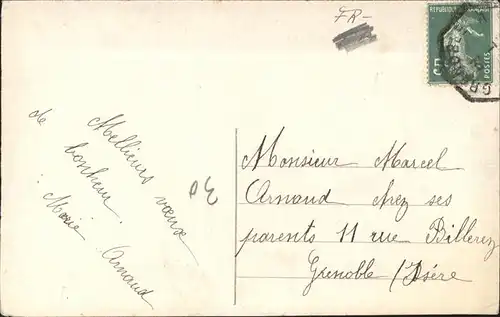 FR-
REPUBLIQUE
5c
POSTES
Mellieurs vœux
de bonheur.
Marie Arnaud
Monsieur Marcel
Arnaud chez ses
parents 11 rue Billerez
Grenoble /Isère